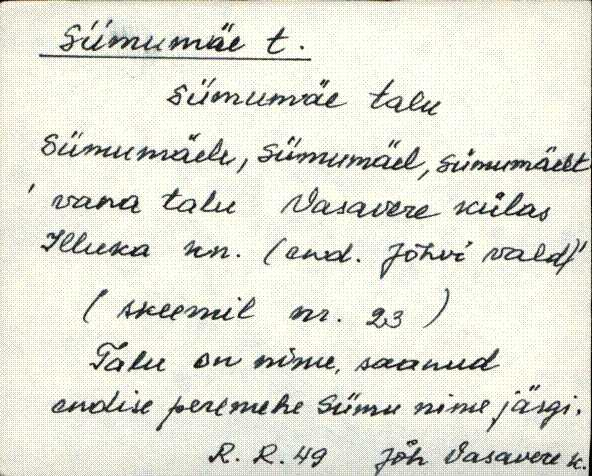 Siimumäe t.
Siimumäe talu
Siimumäele, Siimumäel, Siimumäelt
' vana talu Vasavere külas
Illuka kn. (end. Jõhvi vald)'
(skeemil nr. 23)
Talu on nime, saanud
endise peremehe Siimu nime järgi.
R. R. 49 Jõh Vasavere k.